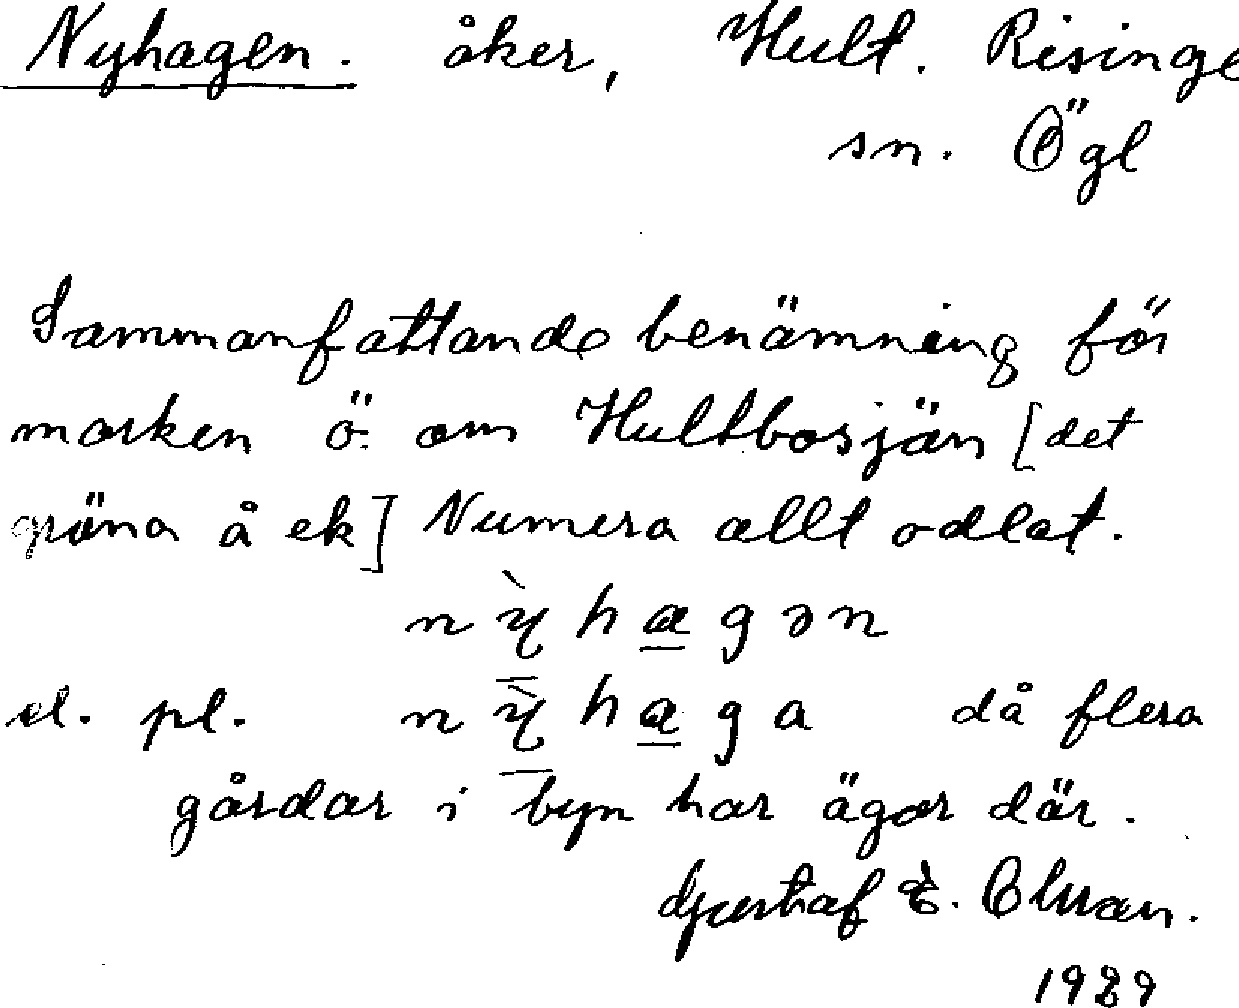 Nyhagen. åker, Hult. Risinge
sn. Ögl
Sammanfattande benämning för
marken ö. om Hultbosjön [det
gröna å ek] Numera allt odlat.
nỳhagən
el. pl. nỳhaga då flera
gårdar i byn har ägor där.
Gustaf E.
1929